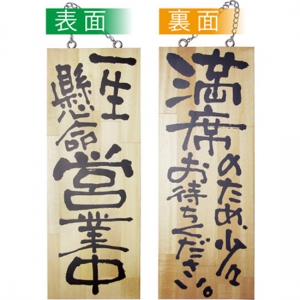 表面
一生
懸命
営業中
裏面
満席
のため、少々
お待ちください。